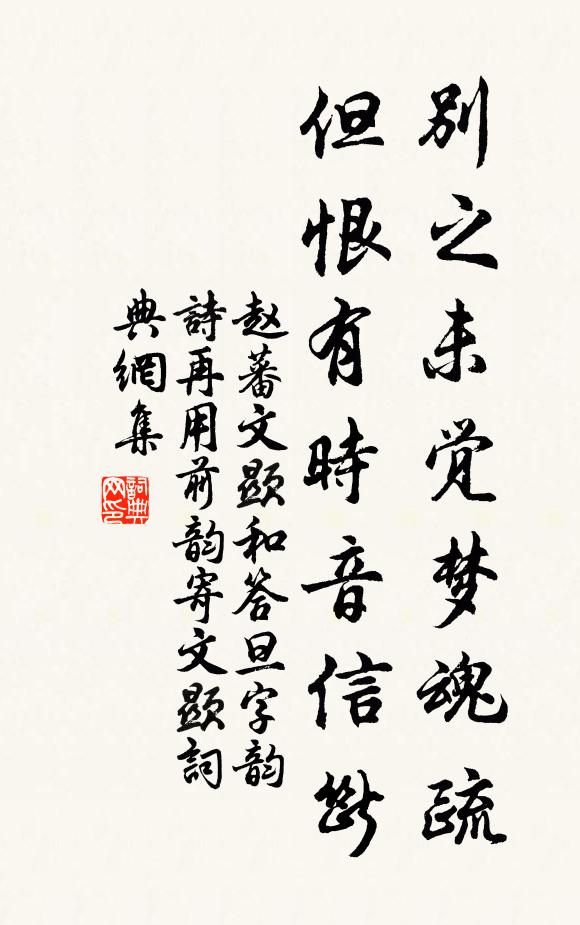 别之未觉梦魂疏
但恨有時音信断
赵蕃文顯和答旦字韵
詩再用前韵寄文顯詞
典網集
詞典网印